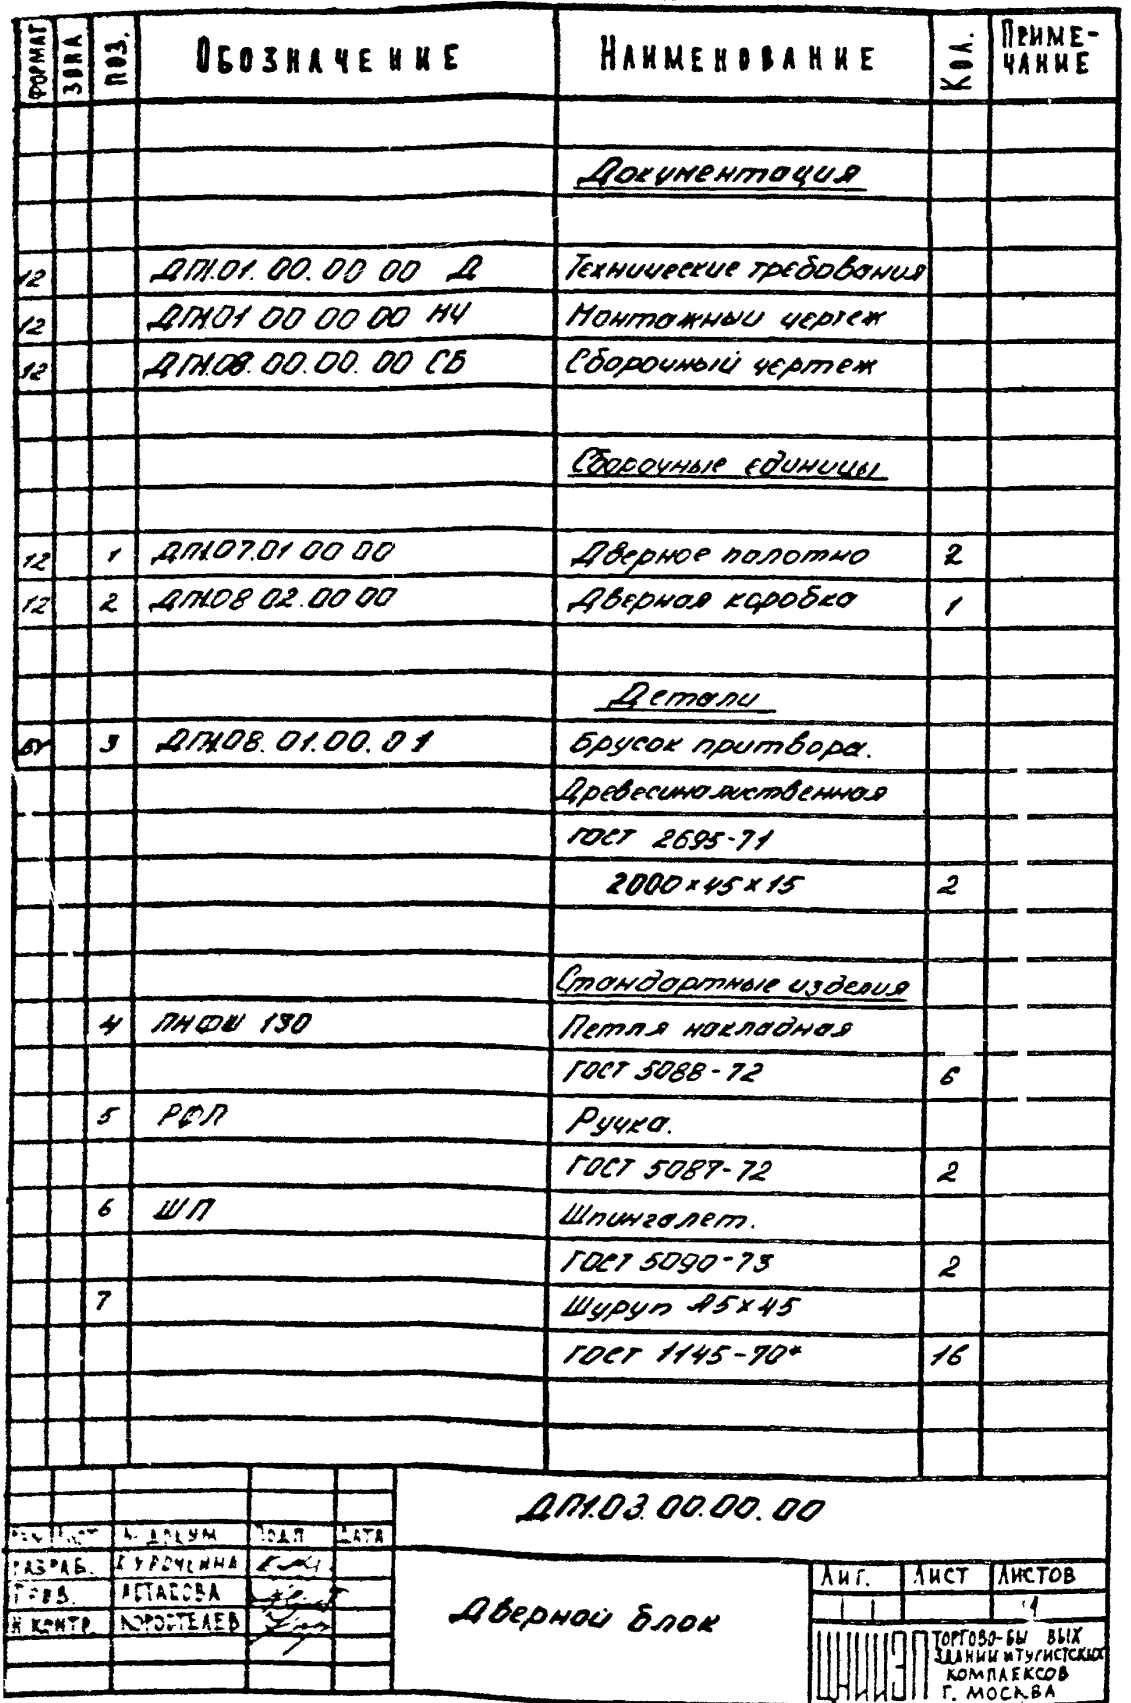 ФОРМАТ ЗОНА ПОЗ. ОБОЗНАЧЕНИЕ НАИМЕНОВАНИЕ КОЛ. ПРИМЕ-
ЧАНИЕ
Документация
12 ДП1.01.00.00 00 Д Технические требования
12 ДП1.01 00 00 00 МЧ Монтажный чертеж
12 ДП1.08.00.00.00 СБ Сборочный чертеж
Сборочные единицы
12 1 ДП1.07.01 00 00 Дверное полотно 2
12 2 ДП1.08 02.00 00 Дверная коробка 1
Детали
БЧ 3 ДП1.08.01.00.01 Брусок притвора.
Древесина лиственная
ГОСТ 2695-71
2000×45×15 2
Стандартные изделия
4 ПНФШ 130 Петля накладная
ГОСТ 5088-72 6
5 РФП Ручка.
ГОСТ 5087-72 2
6 ШП Шпингалет.
ГОСТ 5090-73 2
7 Шуруп А5×45
ГОСТ 1145-70* 16
ДП1.03.00.00.00
ЛИСТ № ДОКУМ ПОДП ДАТА
РАЗРАБ. КУРОЧКИНА
ПРОВ.
Н КОНТР КОРОСТЕЛЕВ
Дверной блок
ЛИТ. ЛИСТ ЛИСТОВ
1
ЦНИИЭП ТОРГОВО-БЫ ВЫХ
ЗДАНИИ И ТУРИСТСКИХ
КОМПЛЕКСОВ
Г. МОСКВА